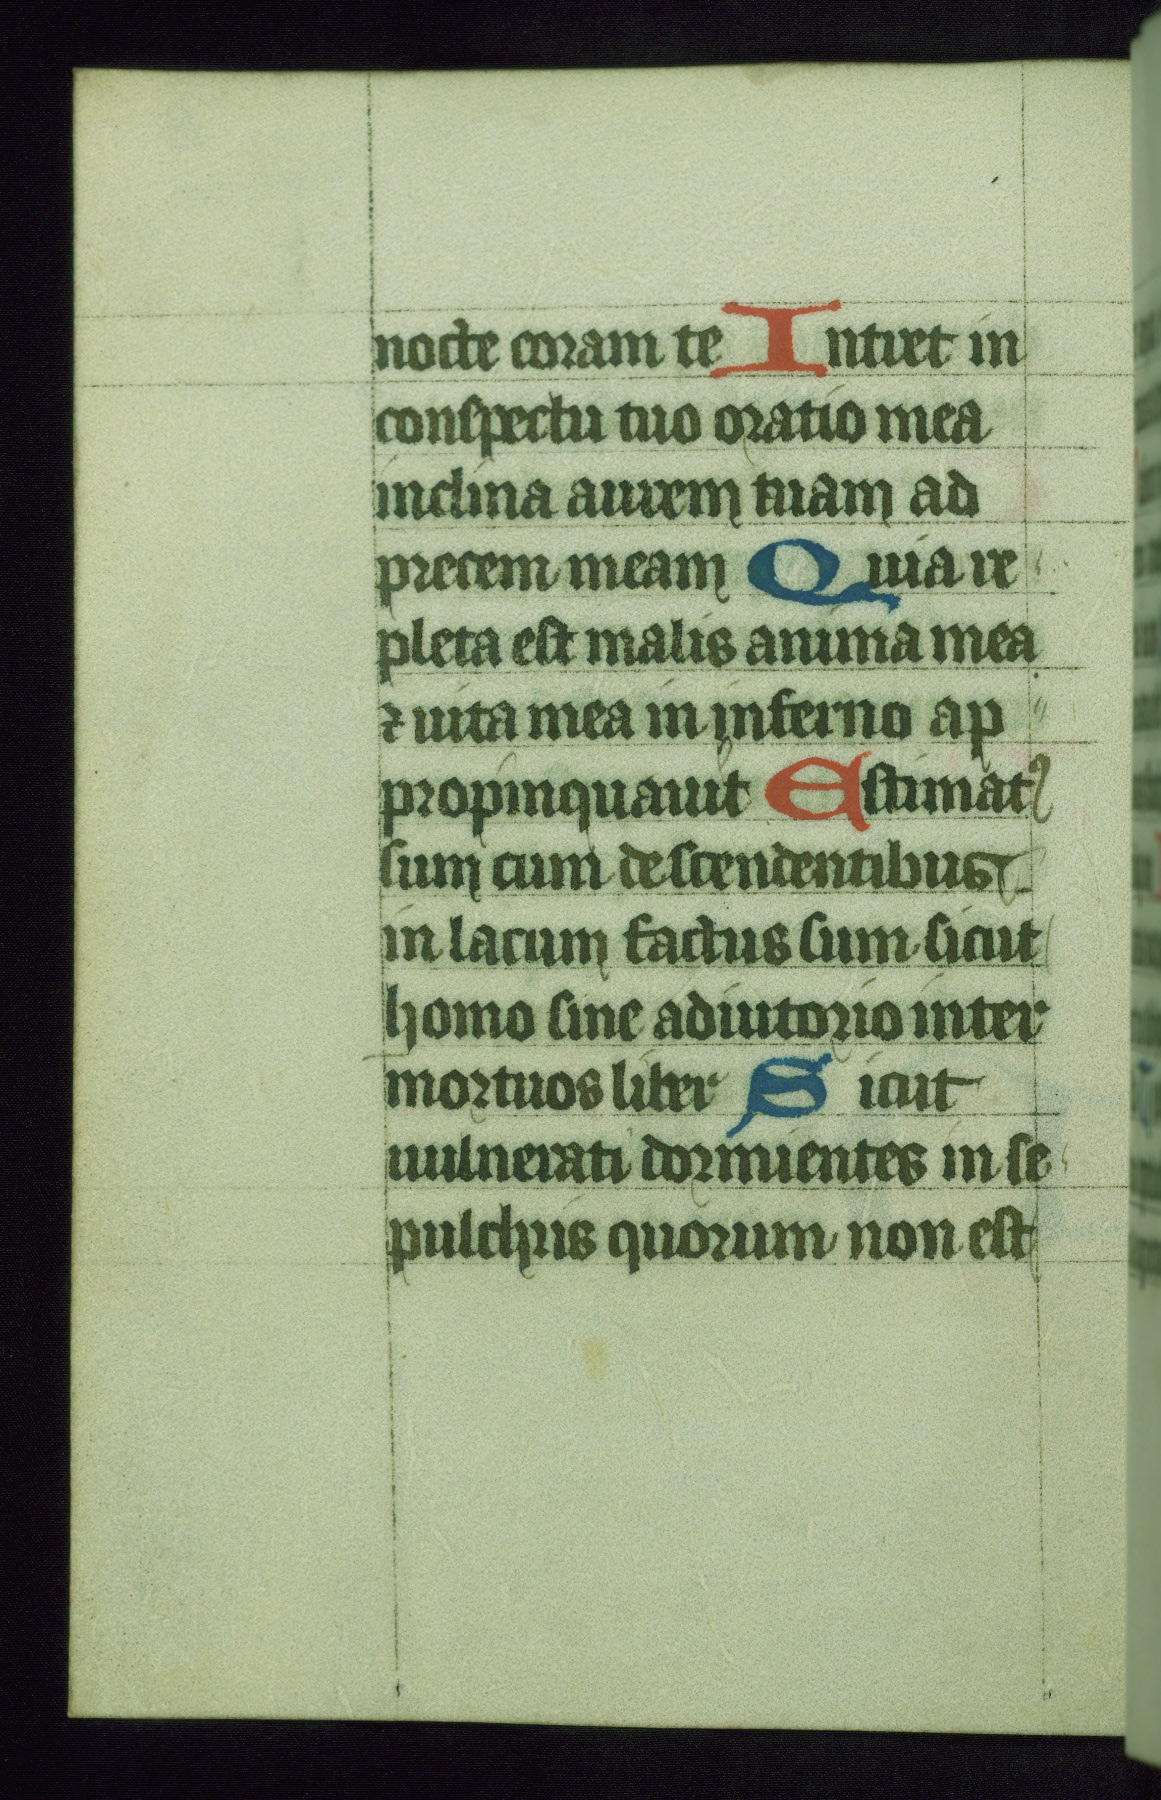 nocte coram te Intret in
conspectu tuo oratio mea
inclina aurem tuam ad
precem meam Quia re
pleta est malis anima mea
⁊ uita mea in inferno ap
propinquauit Estimatꝰ
sum cum descendentibus
in lacum factus sum sicut
homo sine adiutorio inter
mortuos liber Sicut
uulnerati dormientes in se
pulchris quorum non est